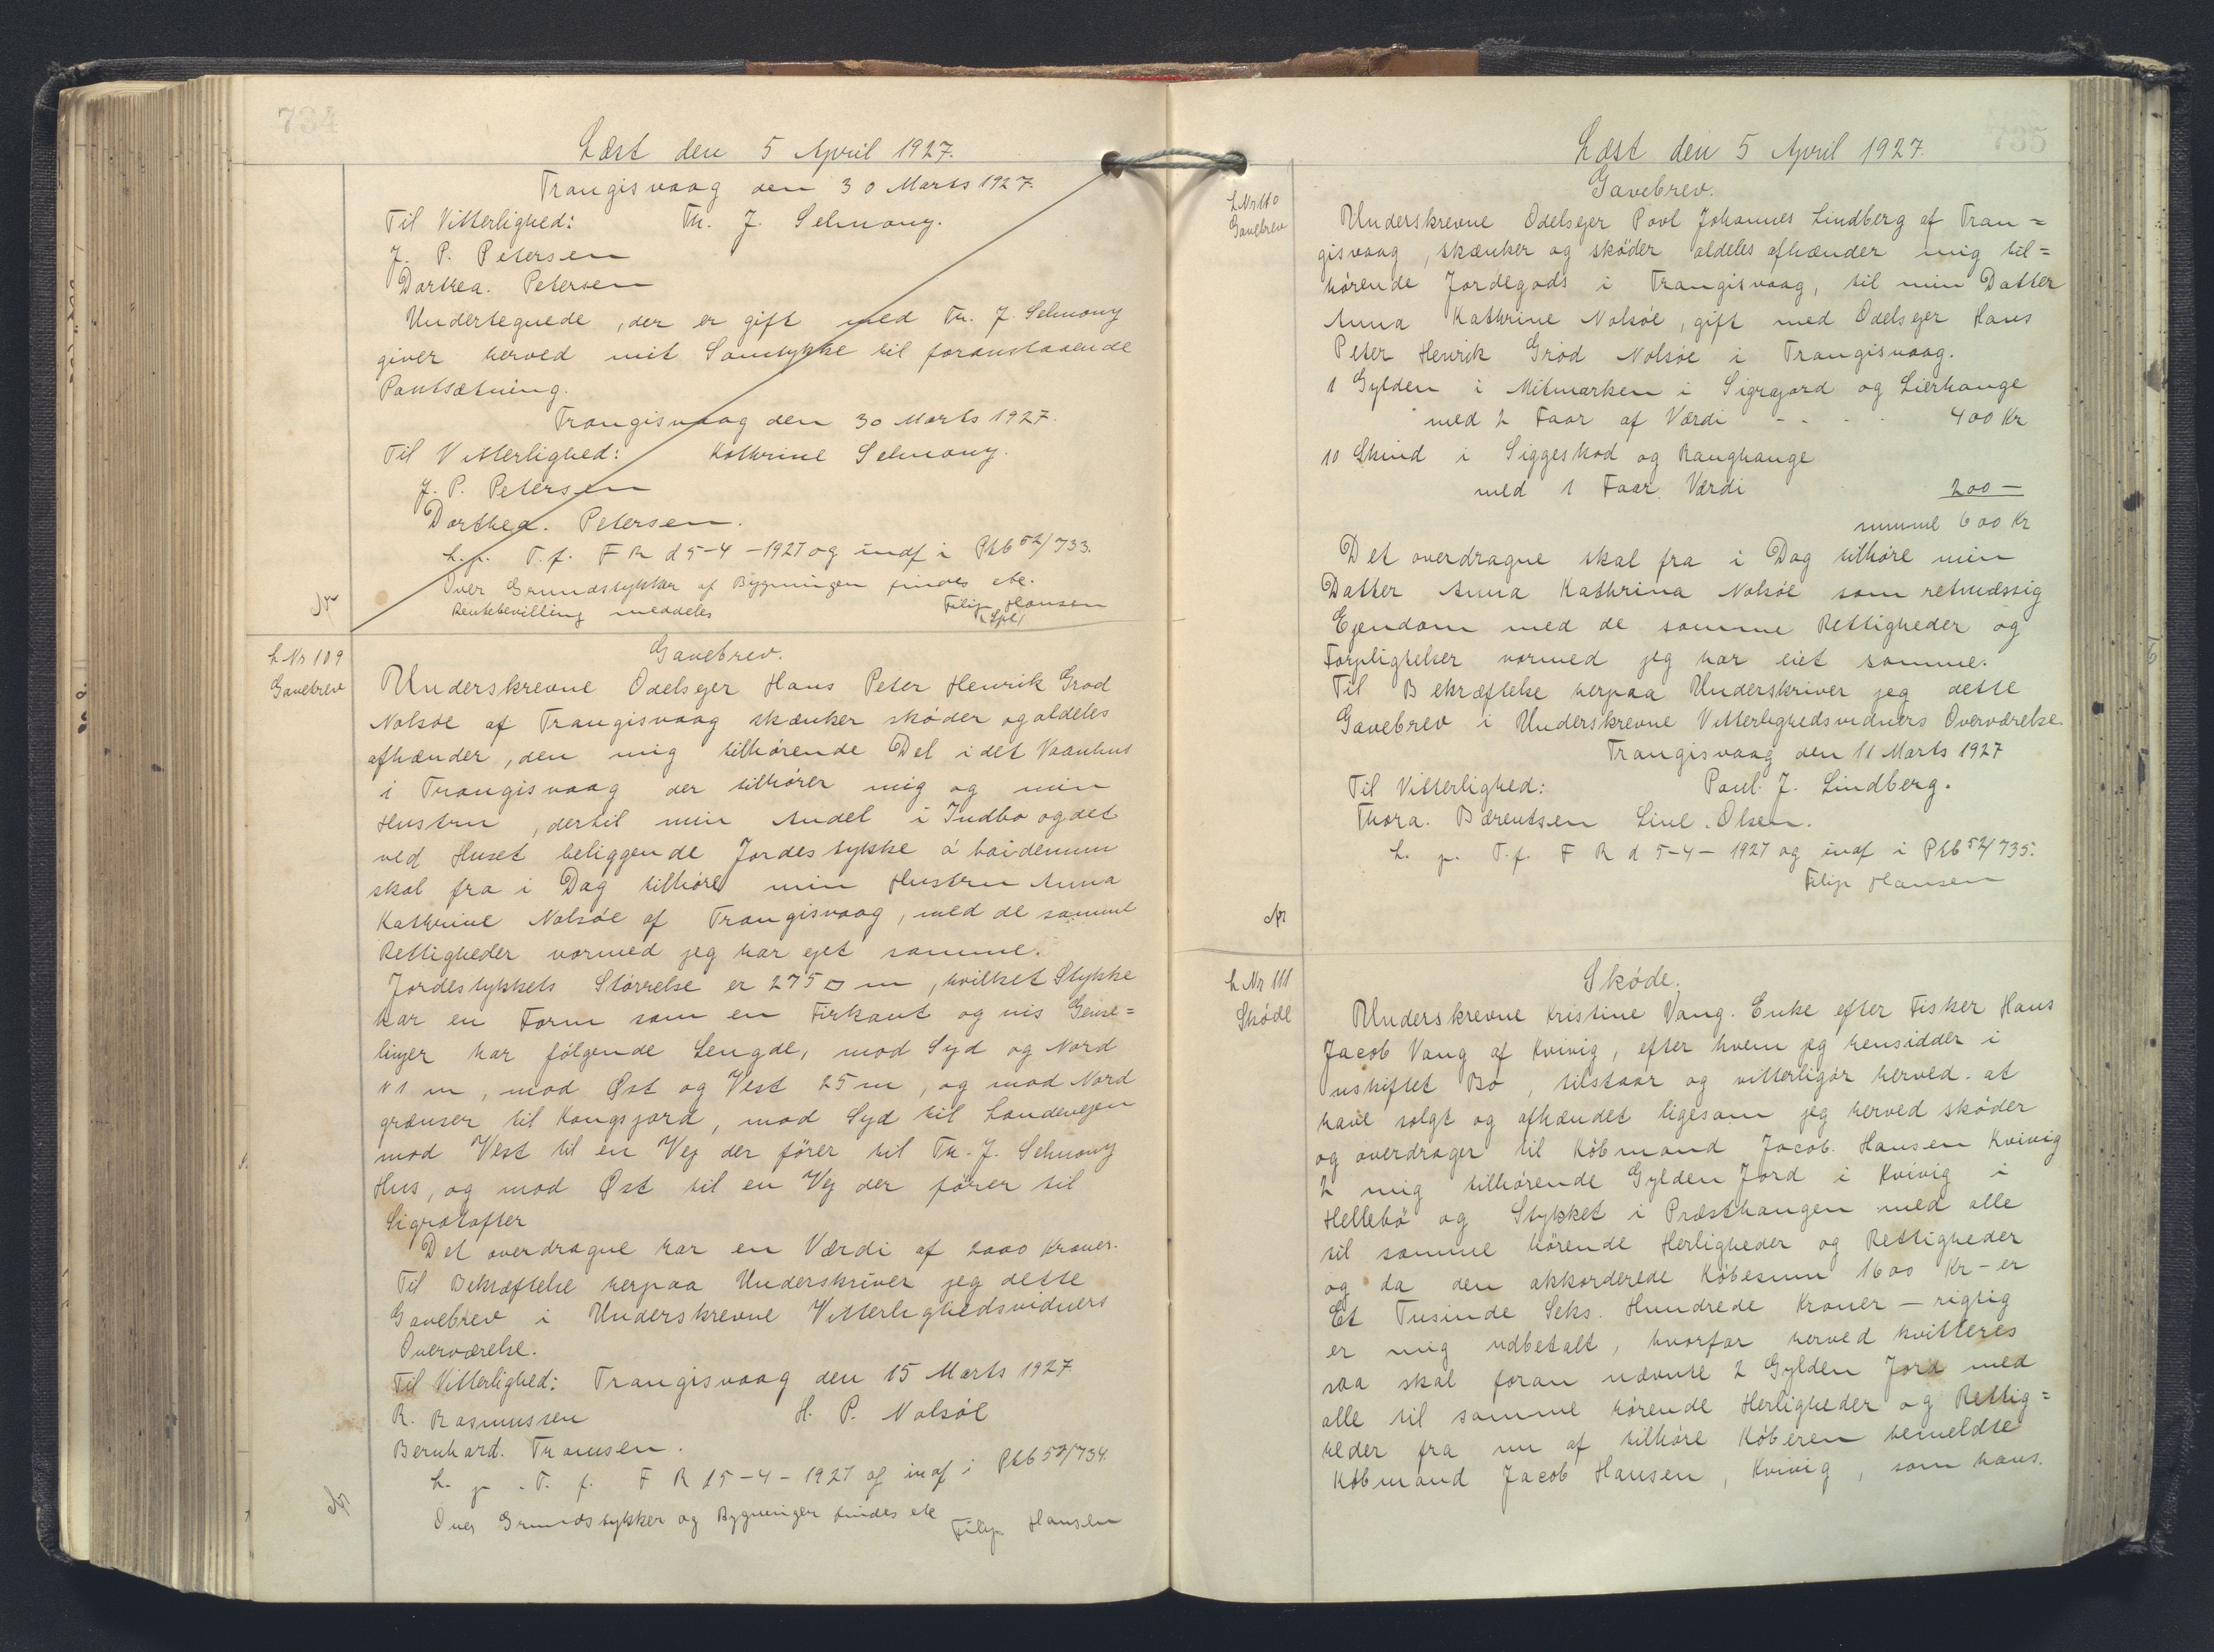 734
Læst den 5 April 1927.
Trangisvaag den 30 Marts 1927.
Til Vitterlighed: Th. J. Selmony.
J. P. Petersen
Dorthea. Petersen
Undertegnede, der er gift med Th. J. Selmony
giver herved mit Samtykke til foranstaaende
Pantsætning.
Trangisvaag den 30 Marts 1927.
Til Vitterlighed: Kathrine Selmony.
J. P. Petersen
Dorthea. Petersen.
L. p. T. f. F R d 5-4-1927 og indf i Pkb 52/733.
Over Grundstykker af Bygningen findes ete.
Rentebevilling meddeles Filip Hansen
L Nr 109
Gavebrev
Gavebrev.
Underskrevne Odelsejer Hans Peter Henrik Grod
Nolsøe af Trangisvaag skænker skøder og aldeles
afhænder, den mig tilhørende Del i det Vaanhus
i Trangisvaag der tilhører mig og min
Hustru, dertil min Andel i Indbo og det
ved Huset beliggende Jordestykke
skal fra i Dag tilhøre min Hustru Anna
Kathrine Nolsøe af Trangisvaag, med de samme
Rettigheder vormed jeg har ejet samme.
Jordestykkets Størrelse er 275 □ m, hvilket Stykke
har en Form som en Firkant og vis Gense=
linjer har følgende Lengde, mod Syd og Nord
11 m, mod Øst og Vest 25 m, og mod Nord
grænser til Kongsjord, mod Syd til Landevejen
mod Vest til en Vej der fører til Th. J. Selmony
Hus, og mod Øst til en Vej der fører til
Sigratofter
Det overdragne har en Værdi af 2000 Kroner.
Til Bekræftelse herpaa Underskriver jeg dette
Gavebrev i Underskrevne Vitterlighedsvidners
Overværelse.
Til Vitterlighed: Trangisvaag den 15 Marts 1927
R. Rasmussen H. P. Nolsöe
Bernhard. Thomsen.
L. p. T. f. F R d 5-4-1927 og indf i Pkb 52/734.
Over Grundstykker og Bygninger findes ete Filip Hansen
735
Læst den 5 April 1927.
L Nr 110
Gavebrev
Gavebrev.
Underskrevne Odelsejer Povl Johannes Lindberg af Tran=
gisvaag, skænker og skøder aldeles afhænder mig til=
hørende Jordegods i Trangisvaag, til min Datter
Anna Kathrine Nolsöe, gift med Odelsejer Hans
Peter Henrik Grød Nolsöe i Trangisvaag.
1 Gylden i Mitmarken i Sigrajord og Lierhange
med 2 Faar af Værdi - - - - 400 Kr
10 Skind i Siggeskod og Ranghange
med 1 Faar Værdi 200 —
summe 600 Kr
Det overdragne skal fra i Dag tilhøre min
Datter Anna Kathrina Nolsöe som retmæssig
Ejendom med de samme Rettigheder og
Forpligtelser vormed jeg har eiet samme.
Til Bekræftelse herpaa Underskriver jeg dette
Gavebrev i Underskrevne Vitterlighedsvidners Overværelse.
Trangisvaag den 11 Marts 1927
Til Vitterlighed: Poul. J. Lindberg.
Thora. Bærentsen Line. Olsen.
L. p. T. f. F R d 5-4-1927 og indf i Pkb 52/735.
Filip Hansen
L Nr 111
Skøde
Skøde.
Underskrevne Kristine Vang. Enke efter Fisker Hans
Jacob Vang af Kvivig, efter hvem jeg hensidder i
uskiftet Bo, tilstaar og vitterligør herved. at
have solgt og afhændet ligesom jeg herved skøder
og overdrager til Købmand Jacob. Hansen Kvivig
2 mig tilhørende Gylden Jord i Kvivig i
Hellebø og Stykket i Præsthangen med alle
til samme hørende Herligheder og Rettigheder
og da den akkorderede Købesum 1600 Kr - er
Et Tusinde Seks. Hundrede Kroner — rigtig
er mig udbetalt, hvorfor herved kvitteres
saa skal foran nævnte 2 Gylden Jord med
alle til samme hørende Herligheder og Rettig=
heder fra nu af tilhøre Køberen bemeldte
Købmand Jacob Hansen, Kvivig, som hans.